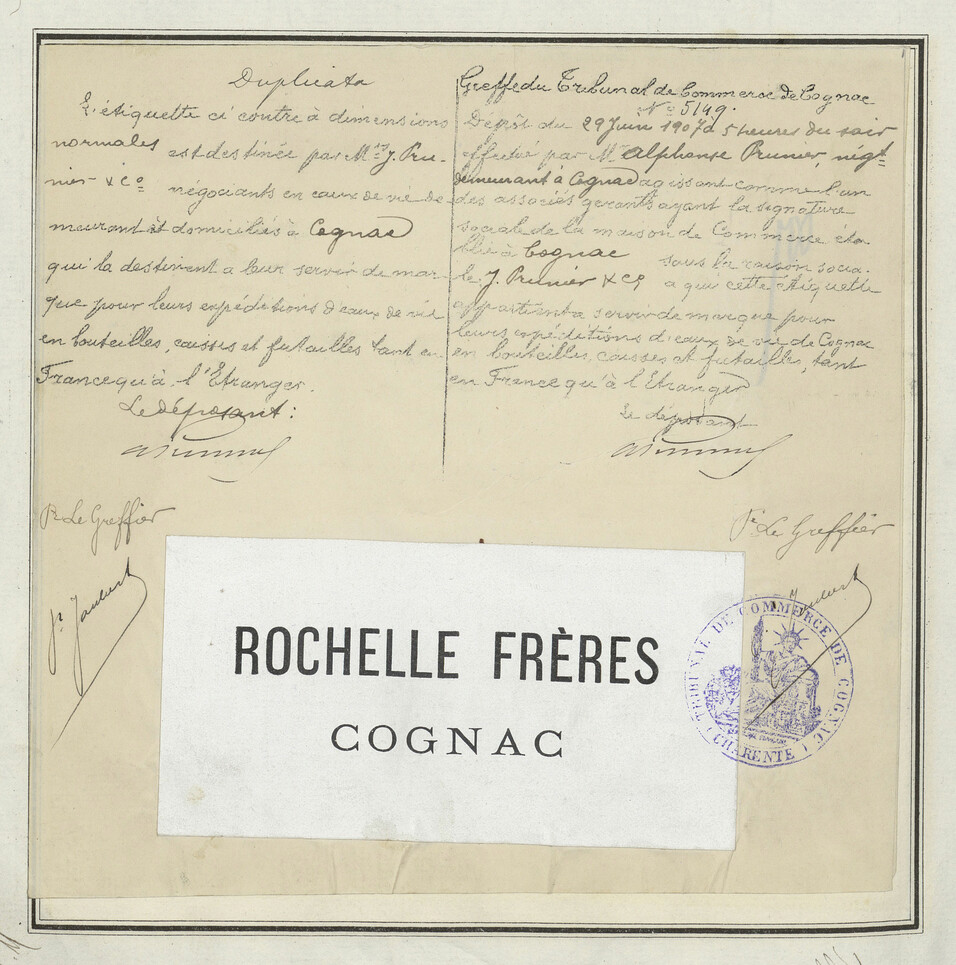 Duplicata
L'étiquette ci contre à dimensions
normales est destinée par MM. J. Pru-
nier & Co négociants en eaux de vie de-
meurant et domiciliés à Cognac
qui la destinent a leur servir de mar-
que pour leurs expéditions d'eaux de vie
en bouteilles, caisses et futailles tant en
France qu'à l'Etranger.
Le déposant:
APrunier
Pr Le Greffier
Pr Joubert
Greffe du Tribunal de Commerce de Cognac
No 5149.
Dépôt du 29 Juin 1907 à 5 heures du soir
effectué par Mr Alphonse Prunier, négt
demeurant à Cognac agissant comme l'un
des associés gérants ayant la signature
sociale de la maison de Commerce éta-
blie à Cognac sous la raison socia-
le J. Prunier & Co, a qui cette étiquette
appartient a servir de marque pour
leurs expéditions d'eaux de vie de Cognac
en bouteilles, caisses et futailles, tant
en France qu'à l'Etranger
Le déposant
APrunier
Pr Le Greffier
Joubert
ROCHELLE FRÈRES
COGNAC
TRIBUNAL DE COMMERCE DE COGNAC
(CHARENTE)